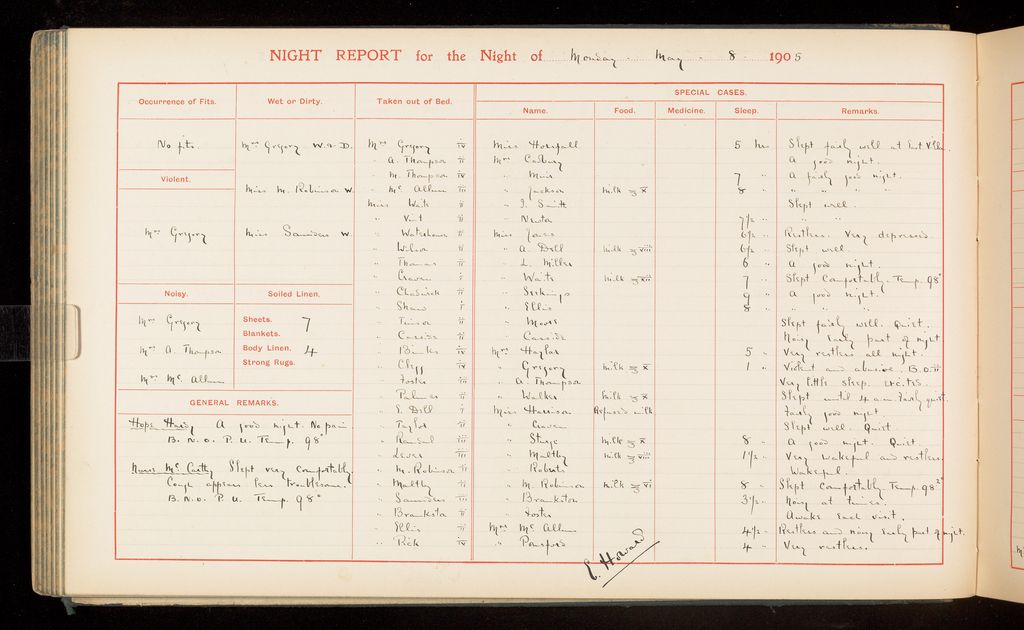 NIGHT REPORT for the Night of Monday May 8 1905
Occurrence of Fits.
No fits.
Violent.
Mrs Gregory
Noisy.
Mrs Gregory
Mrs A. Thompson
Mrs Mc Allum
Wet or Dirty.
Mrs Gregory W. & D.
Miss M. Robinson W.
Miss Saunders W.
Soiled Linen.
Sheets. 7
Blankets.
Body Linen. 4
Strong Rugs.
GENERAL REMARKS.
Hope Hardy A good night. No pain
B. N. O. P. U. Temp. 98°
Nurse McCarthy Slept very comfortably.
Cough appears less troublesome.
B. N. O. P. U. Temp. 98°
Taken out of Bed.
Mrs Gregory iv
" A. Thompson ii
" M. Thompson iv
" Mc Allum iii
Miss Waite ii
" Vint ii
" Waterhouse ii
" Wilson ii
" Thomas ii
" Craven i
" Chadwick ii
" Shaw i
" ii
" Cassidi ii
" Binks iv
" Clegg iv
" Foster iii
" Palmer ii
" E. Dell i
" Taylor ii
" iii
" Lever iii
" M. Robinson ii
" Maltby ii
" Saunders iii
" Brankston ii
" Ellis ii
" Rick iv
SPECIAL CASES.
Name. Food. Medicine. Sleep. Remarks.
Miss Horsfall 5 hrs Slept fairly well at East Villa
Mrs Cadbury A good night.
" Muir 7 " A fairly good night.
" Jackson Milk ℥ x 8 " " " " "
" J. Smith Slept well.
" Newton 7½ " " "
Miss 6½ " Restless. Very depressed
" A. Dell Milk ℥ viii 6½ " Slept well.
" L. Miller 6 " A good night.
" Waite Milk ℥ xii 7 " Slept comfortably. Temp. 98°
" 9 " A good night.
" Ellis 8 " " " "
" Moore Slept fairly well. Quiet.
" Cassidi Noisy early part of night
Mrs Haylor 5 " Very restless all night.
" Gregory Milk ℥ x 1 " Violent and abusive. B.O. ii
" A. Thompson Very little sleep.
" Walker Milk ℥ x Slept until 4 a.m. Fairly quiet.
Miss Harrison Refused milk Fairly good night.
" Craven Slept well. Quiet.
" Sturge Milk ℥ x 8 " A good night. Quiet.
" Maltby Milk ℥ viii 1½ " Very wakeful and restless.
" Roberts Wakeful.
" M. Robinson Milk ℥ vi 8 " Slept comfortably. Temp. 98²
" Brankston 3½ " Noisy at times.
" Foster Awake each visit.
Mrs Mc Allum 4½ " Restless and noisy early part of night.
" Ponsford 4 " Very restless.
E. Howard